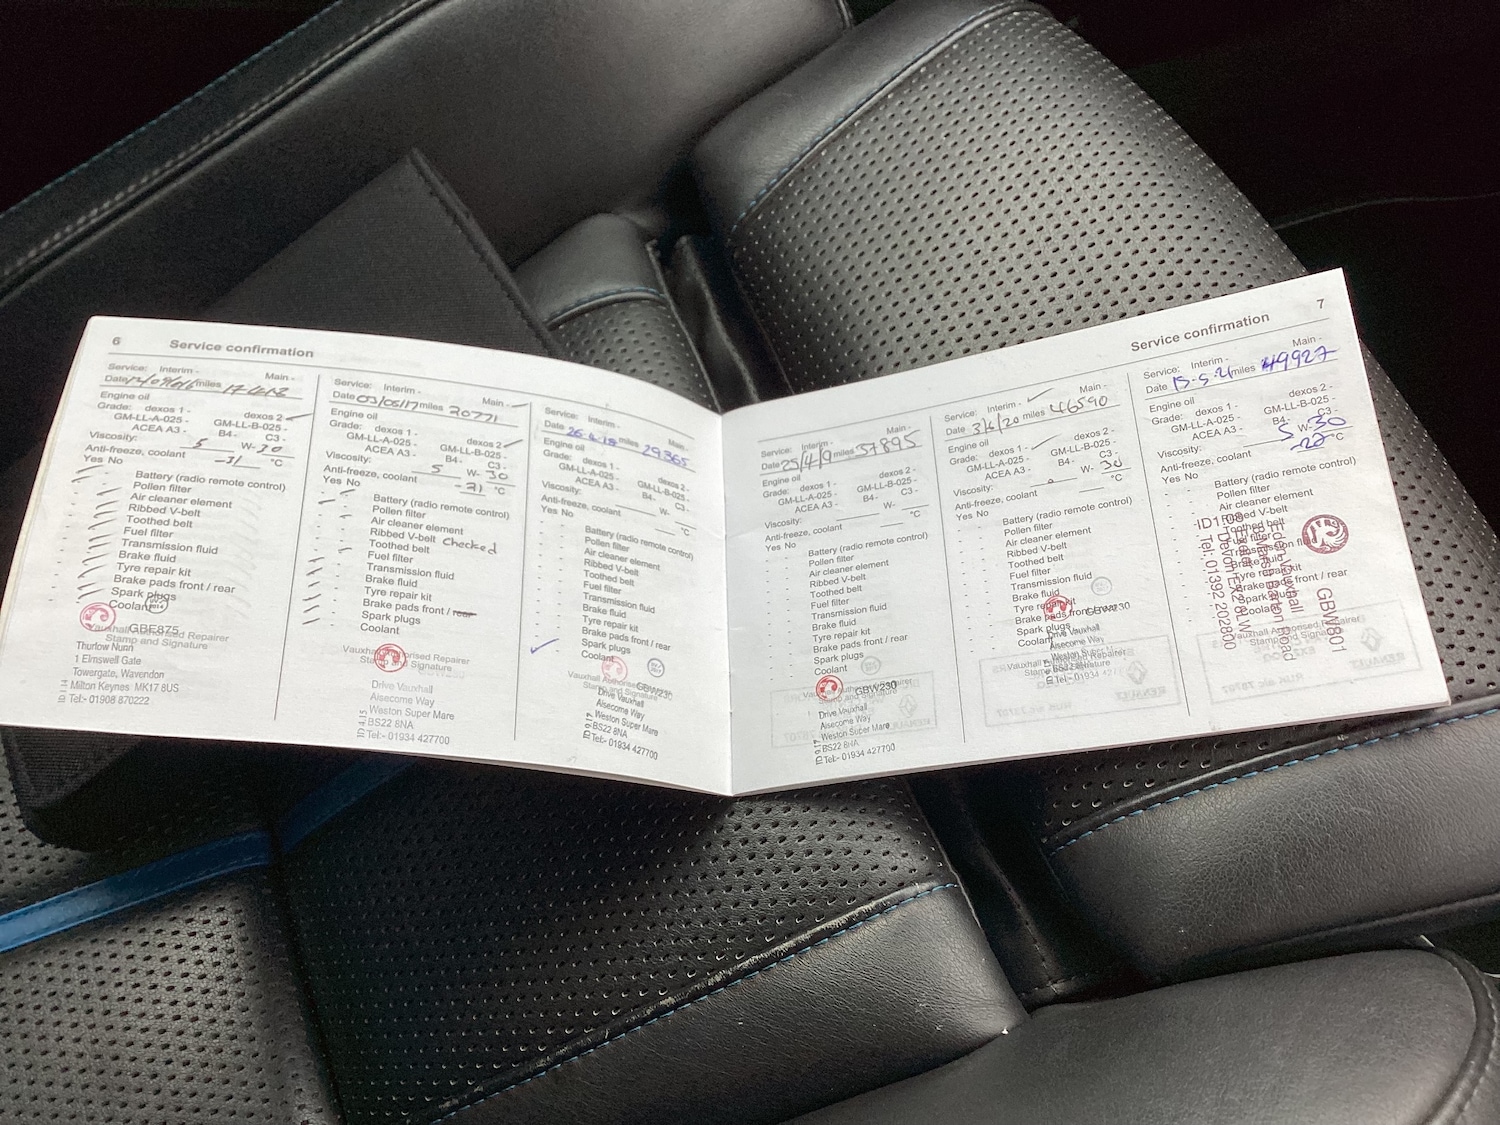 6
Service confirmation
Service: Interim - Main -
Date miles
Engine oil
Grade: dexos 1 - dexos 2 -
GM-LL-A-025 - GM-LL-B-025 -
ACEA A3 - B4- C3 -
Viscosity: 5 W- 30
Anti-freeze, coolant -31 °C
Yes No
Battery (radio remote control)
Pollen filter
Air cleaner element
Ribbed V-belt
Toothed belt
Fuel filter
Transmission fluid
Brake fluid
Tyre repair kit
Brake pads front / rear
Spark plugs
Coolant
GBE875
Vauxhall Authorised Repairer
Stamp and Signature
Thurlow Nunn
1 Elmswell Gate
Towergate, Wavendon
Milton Keynes MK17 8US
Tel:- 01908 870222
Service: Interim - Main -
Date 03/05/17 miles 20771
Engine oil
Grade: dexos 1 - dexos 2 -
GM-LL-A-025 - GM-LL-B-025 -
ACEA A3 - B4- C3 -
Viscosity: 5 W- 30
Anti-freeze, coolant °C
Yes No
Battery (radio remote control)
Pollen filter
Air cleaner element
Ribbed V-belt Checked
Toothed belt
Fuel filter
Transmission fluid
Brake fluid
Tyre repair kit
Brake pads front / rear
Spark plugs
Coolant
Vauxhall Authorised Repairer
Stamp and Signature
Drive Vauxhall
Aisecome Way
Weston Super Mare
BS22 8NA
Tel:- 01934 427700
ID 4.15
Service: Interim - Main -
Date 26-4-18 miles 29365
Engine oil
Grade: dexos 1 - dexos 2 -
GM-LL-A-025 - GM-LL-B-025 -
ACEA A3 - B4- C3 -
Viscosity: W-
Anti-freeze, coolant °C
Yes No
Battery (radio remote control)
Pollen filter
Air cleaner element
Ribbed V-belt
Toothed belt
Fuel filter
Transmission fluid
Brake fluid
Tyre repair kit
Brake pads front / rear
Spark plugs
Coolant
GBW230
Vauxhall Authorised Repairer
Stamp and Signature
Drive Vauxhall
Aisecome Way
Weston Super Mare
BS22 8NA
Tel:- 01934 427700
7
Service confirmation
Service: Interim - Main -
Date 25/4/9 miles 57895
Engine oil
Grade: dexos 1 - dexos 2 -
GM-LL-A-025 - GM-LL-B-025 -
ACEA A3 - B4- C3 -
Viscosity: W-
Anti-freeze, coolant °C
Yes No
Battery (radio remote control)
Pollen filter
Air cleaner element
Ribbed V-belt
Toothed belt
Fuel filter
Transmission fluid
Brake fluid
Tyre repair kit
Brake pads front / rear
Spark plugs
Coolant
GBW230
Vauxhall Authorised Repairer
Stamp and Signature
Drive Vauxhall
Aisecome Way
Weston Super Mare
BS22 8NA
Tel:- 01934 427700
Service: Interim - Main -
Date 3/6/20 miles 46590
Engine oil
Grade: dexos 1 - dexos 2 -
GM-LL-A-025 - GM-LL-B-025 -
ACEA A3 - B4- C3 -
Viscosity: W- 30
Anti-freeze, coolant °C
Yes No
Battery (radio remote control)
Pollen filter
Air cleaner element
Ribbed V-belt
Toothed belt
Fuel filter
Transmission fluid
Brake fluid
Tyre repair kit
Brake pads front / rear
Spark plugs
Coolant
GBW230
Vauxhall Authorised Repairer
Stamp and Signature
Drive Vauxhall
Aisecome Way
Weston Super Mare
BS22 8NA
Tel:- 01934
Service: Interim - Main -
Date 15-5-21 miles 49927
Engine oil
Grade: dexos 1 - dexos 2 -
GM-LL-A-025 - GM-LL-B-025 -
ACEA A3 - B4- C3 -
Viscosity: 5 W- 30
Anti-freeze, coolant °C
Yes No
Battery (radio remote control)
Pollen filter
Air cleaner element
Ribbed V-belt
Toothed belt
Fuel filter
Transmission fluid
Brake fluid
Tyre repair kit
Brake pads front / rear
Spark plugs
Coolant
Vauxhall Authorised Repairer
Stamp and Signature
GBW801
Vauxhall
Marsh Barton Road
Exeter
Devon EX2 8LW
Tel: 01392 202800